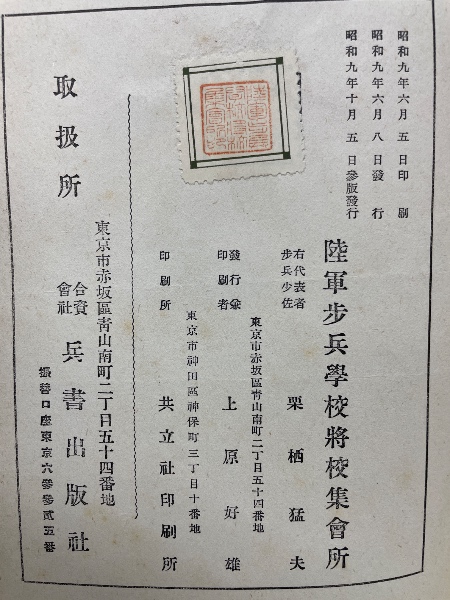 昭和九年六月五日印刷
昭和九年六月八日發行
昭和九年十月五日參版發行
陸軍步兵學校將校集會所
右代表者
步兵少佐
栗栖猛夫
東京市赤坂區靑山南町二丁目五十四番地
發行兼
印刷者
上原好雄
東京市神田區神保町三丁目十番地
印刷所
共立社印刷所
東京市赤坂區靑山南町二丁目五十四番地
取扱所
合資
會社
兵書出版社
振替口座東京六參參貳五番